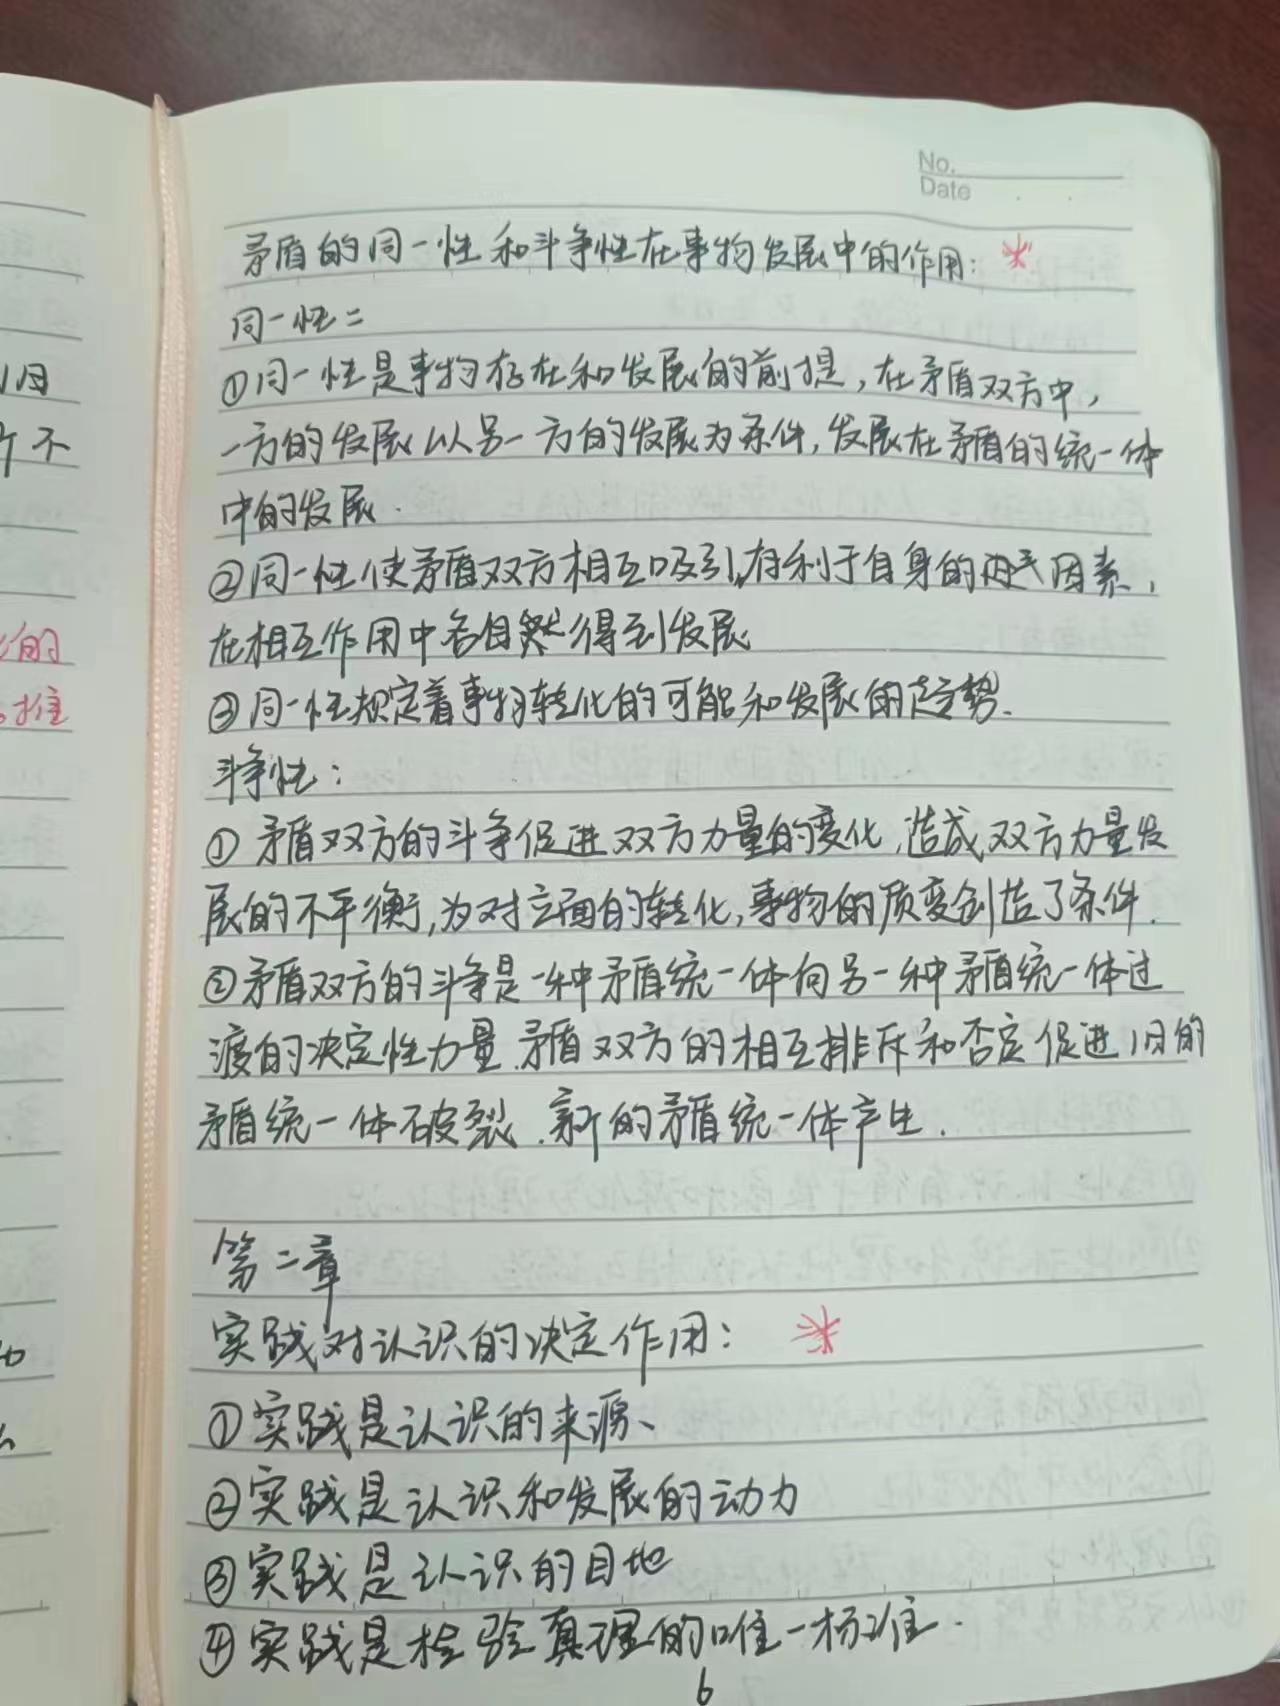 No.
Date
矛盾的同一性和斗争性在事物发展中的作用:
同一性:
①同一性是事物存在和发展的前提,在矛盾双方中,
一方的发展以另一方的发展为条件,发展在矛盾的统一体
中的发展.
②同一性使矛盾双方相互吸引,有利于自身的因素,
在相互作用中各自然得到发展
③同一性规定着事物转化的可能和发展的趋势.
斗争性:
①矛盾双方的斗争促进双方力量的变化,造成双方力量发
展的不平衡,为对立面的转化,事物的质变创造了条件.
②矛盾双方的斗争是一种矛盾统一体向另一种矛盾统一体过
渡的决定性力量.矛盾双方的相互排斥和否定促进旧的
矛盾统一体破裂.新的矛盾统一体产生.
第二章
实践对认识的决定作用:
①实践是认识的来源、
②实践是认识和发展的动力
③实践是认识的目地
④实践是检验真理的唯一标准.
6
旧
不
的
推